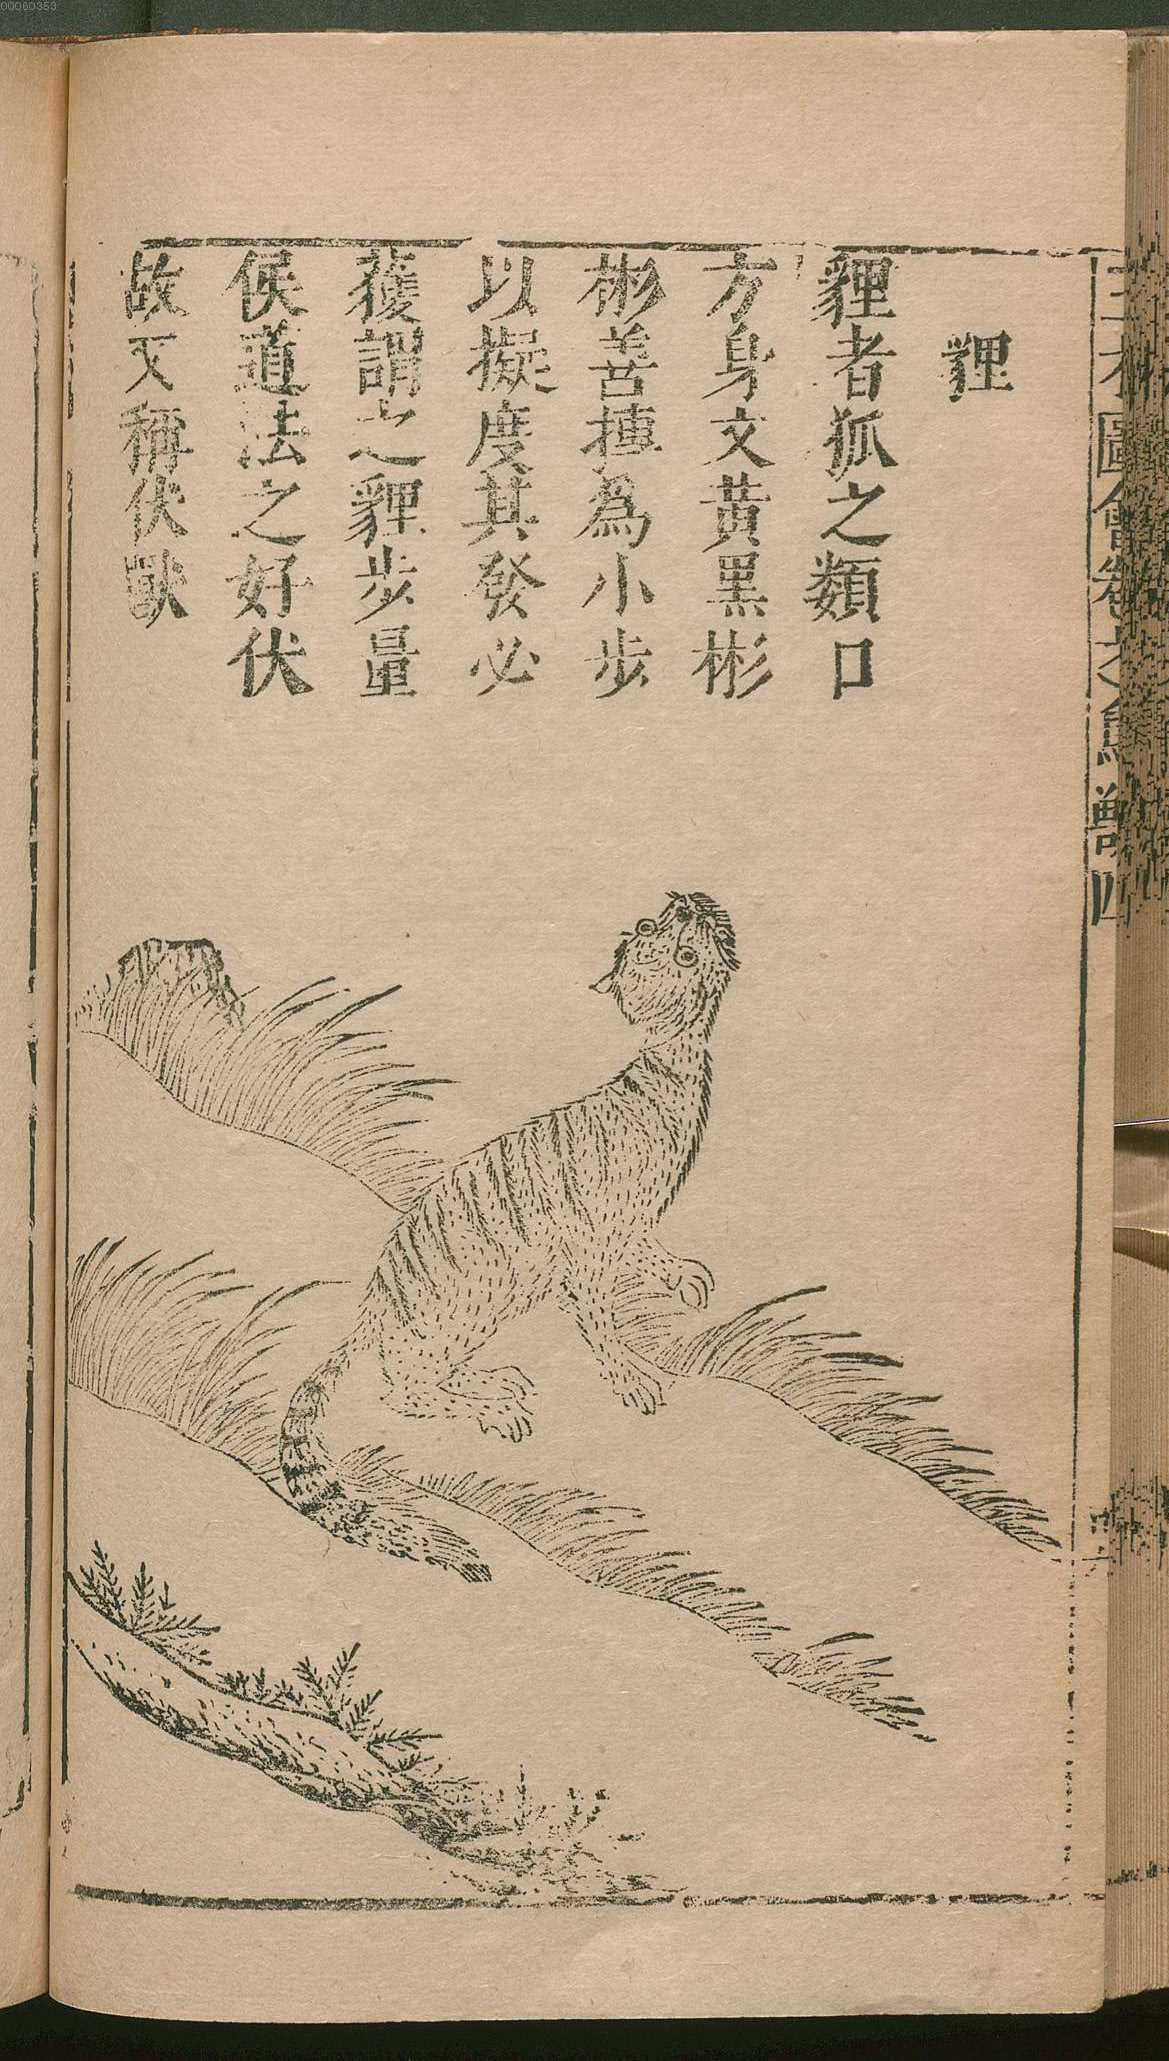 00060353
三才圖會卷之鳥獸四
貍
貍者狐之類口
方身文黃黑彬
彬善搏爲小步
以擬度其發必
獲謂之貍步量
侯道法之好伏
故又稱伏獸